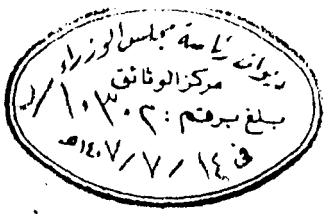 ديوان رئاسة مجلس الوزراء
مركز الوثائق
بلغ برقم : ١٠٣٠٢/ر
في ١٤/٧/١٤٠٧هـ